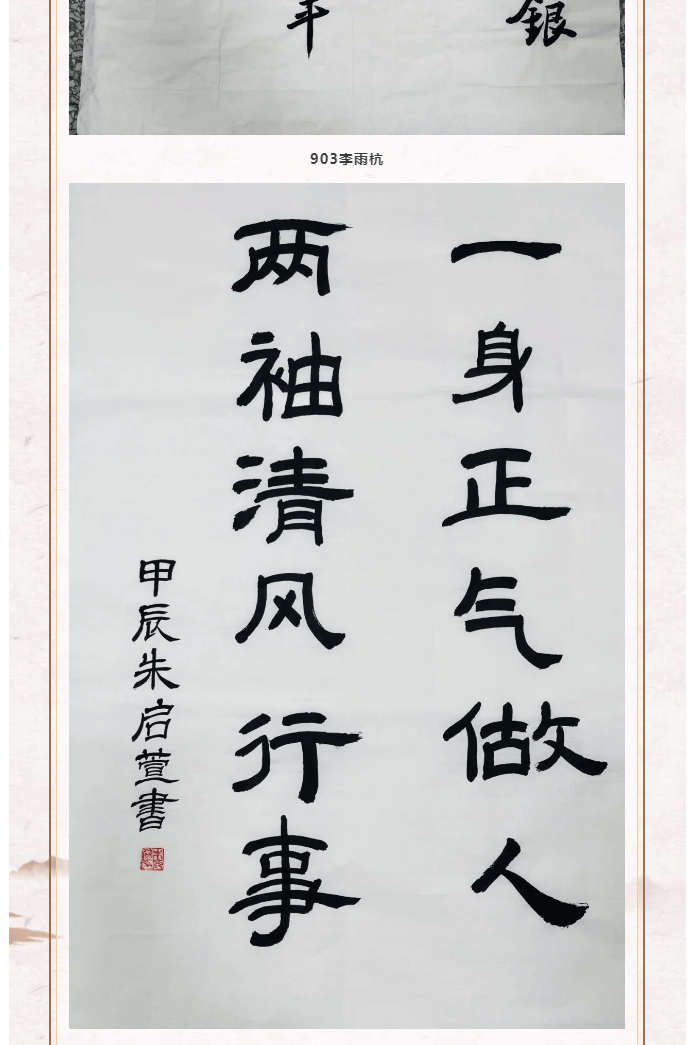 银
年
903李雨杭
一身正气做人
两袖清风行事
甲辰朱启萱書